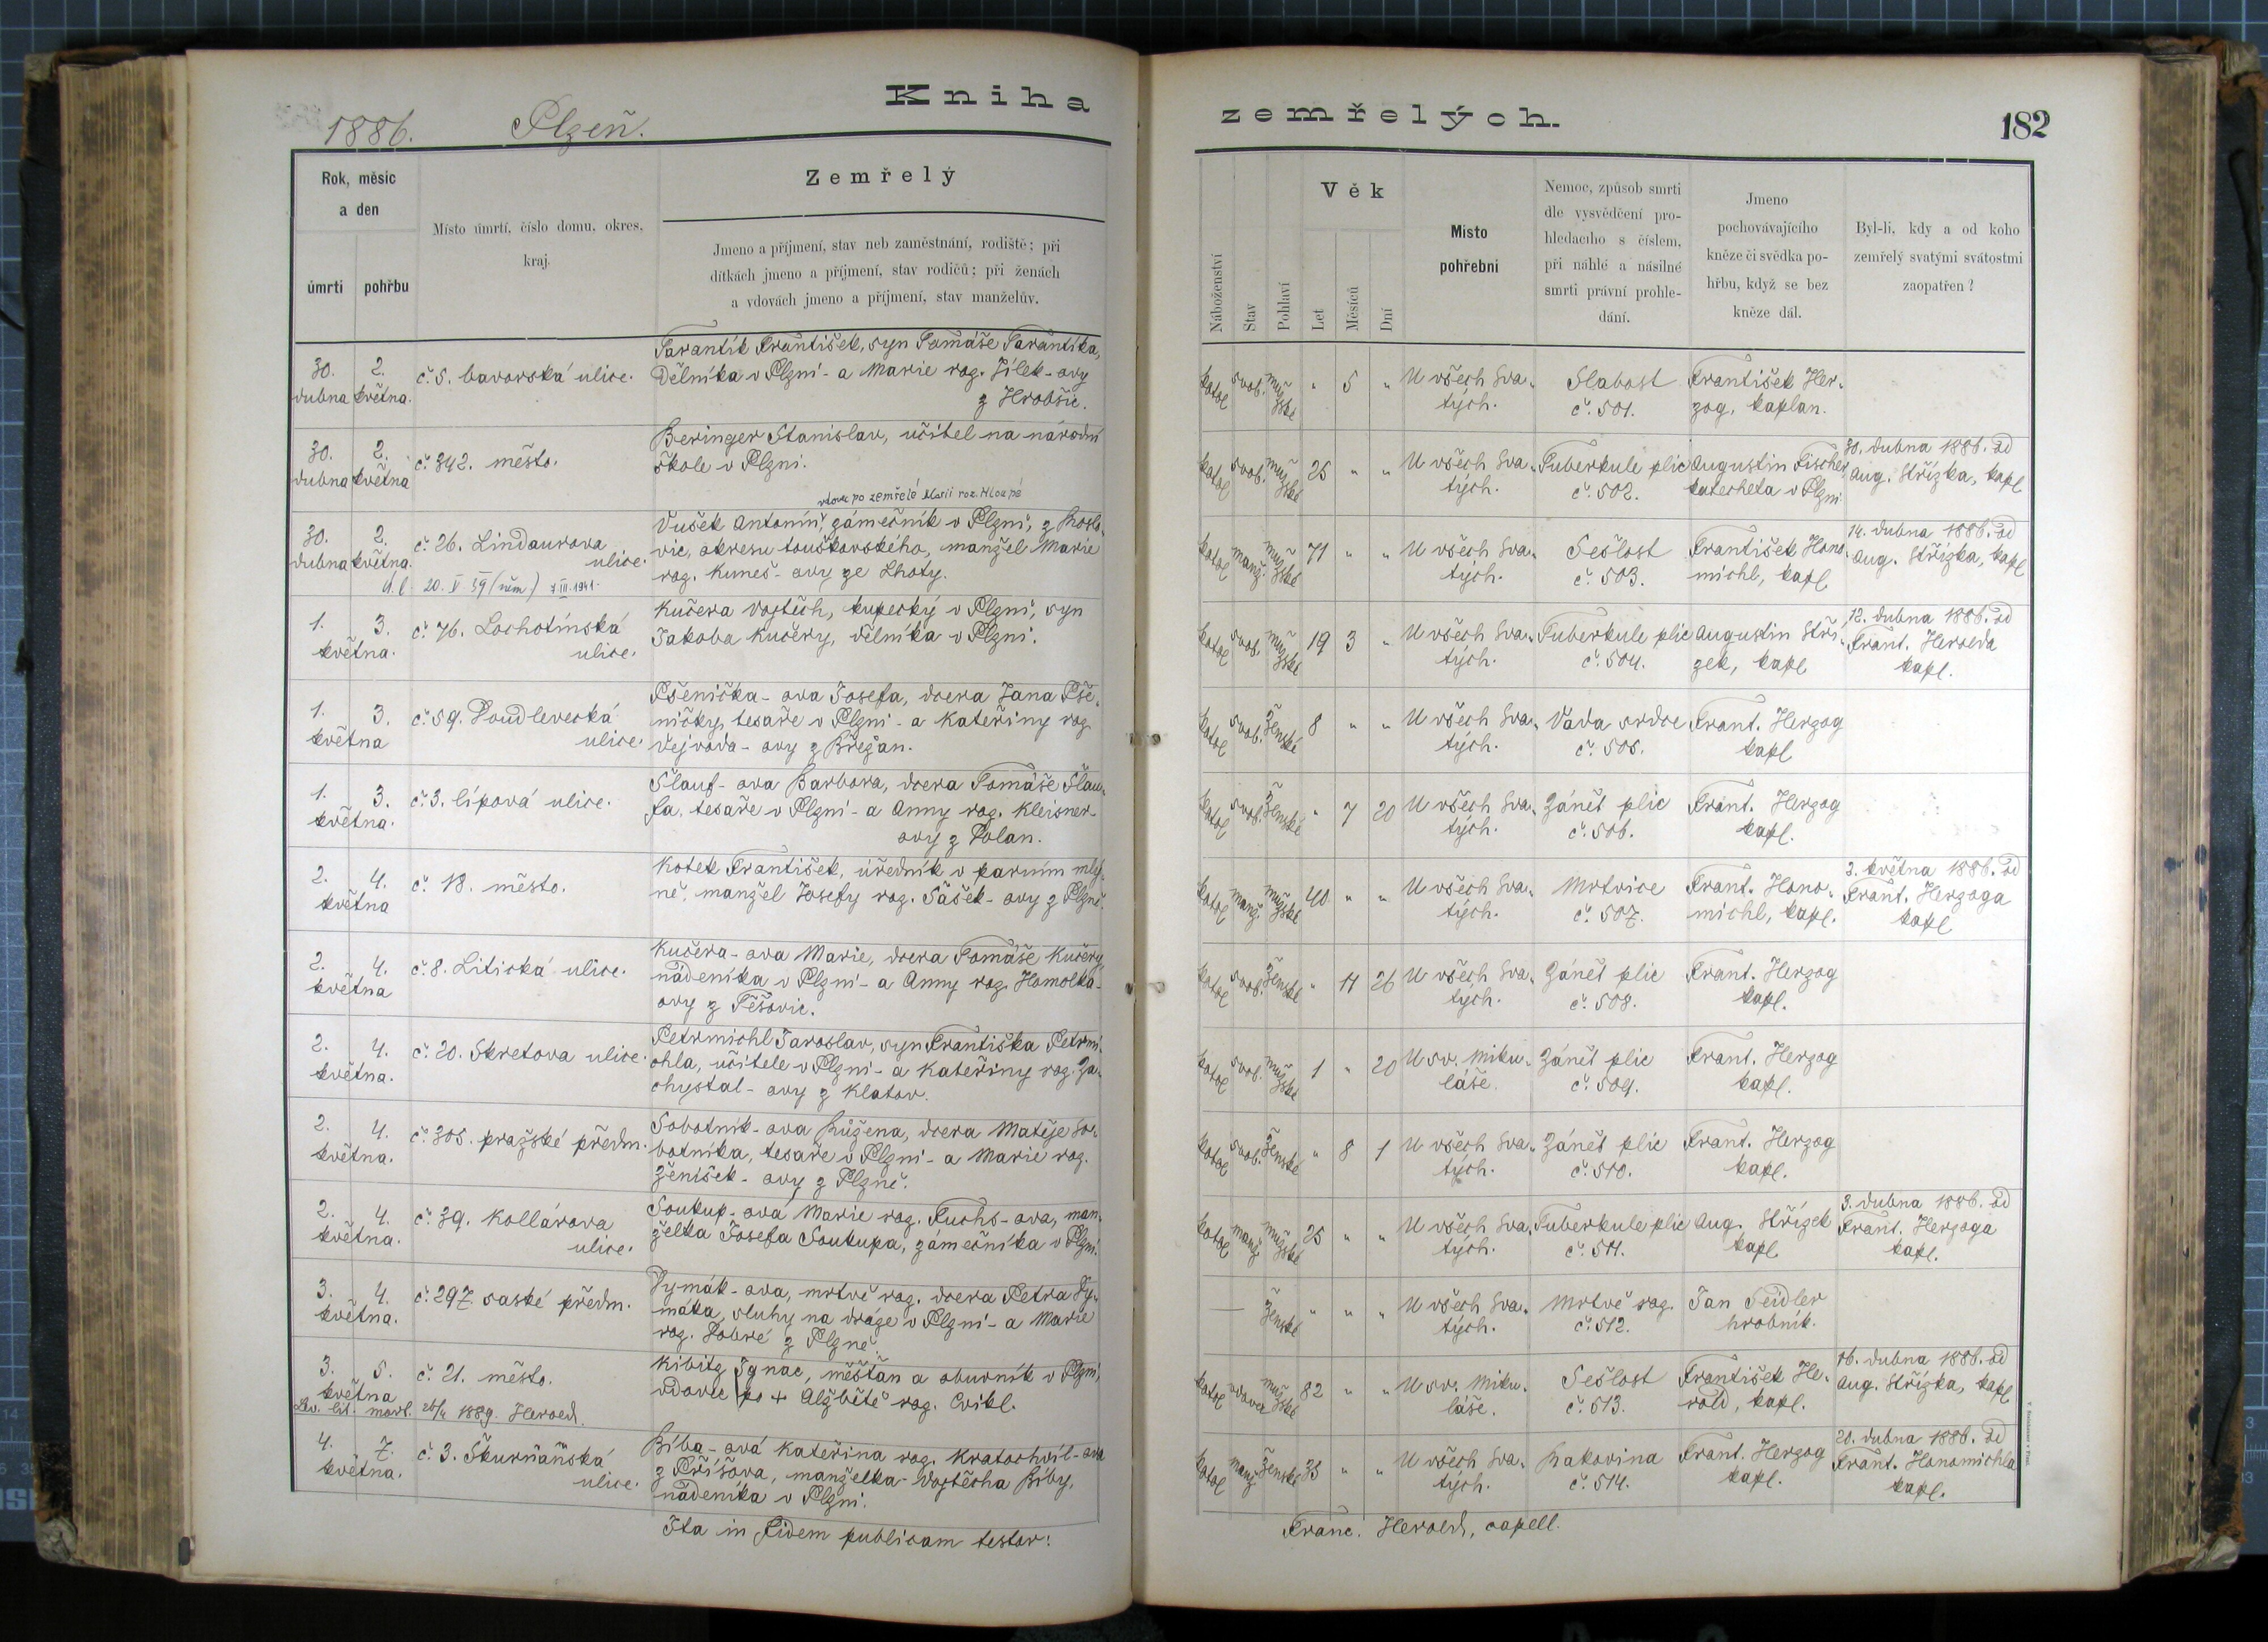 Kniha
1886. Plzeň.
Rok, měsíc
a den
úmrtí
pohřbu
Místo úmrtí, číslo domu, okres,
kraj.
Zemřelý
Jmeno a příjmení, stav neb zaměstnání, rodiště; při
dítkách jmeno a příjmení, stav rodičů; při ženách
a vdovách jmeno a příjmení, stav manželův.
30. 2.
dubna května.
č. 5. bavorská ulice.
Tarantík František, syn Tomáše Tarantíka,
dělníka v Plzni - a Marie roz. Jílek-ovy
z Hrobšic.
30. 2.
dubna května
č. 342. město.
Beringer Stanislav, učitel na národní
škole v Plzni.
vdovec po zemřelé Marii roz. Hloupé
30. 2.
dubna května.
č. 26. Lindaurova
ulice.
20. V 39 (něm) 7. III. 1941.
Vušek Antonín, zámečník v Plzni, z
vic, okresu touškovského, manžel Marie
roz. Kuneš-ovy ze Lhoty.
1. 3.
května.
č. 76. Lochotínská
ulice.
Kučera Vojtěch, kupecký v Plzni, syn
Jakoba Kučery, dělníka v Plzni.
1. 3.
května
č. 59. Poudlevecká
ulice.
Pšenička-ova Josefa, dcera Jana Pše-
ničky, tesaře v Plzni - a Kateřiny roz.
Vejvoda-ovy z Břežan.
1. 3.
května.
č. 3. lípová ulice.
Šlauf-ova Barbora, dcera Tomáše Šlau-
fa, tesaře v Plzni - a Anny roz. Kleisner-
ovy z Polan.
2. 4.
května
č. 18. město.
Kotek František, úředník v parním mlý-
ně, manžel Josefy roz. Sášek-ovy z Plzně.
2. 4.
května
č. 8. Litická ulice.
Kučera-ova Marie, dcera Tomáše Kučery,
nádeníka v Plzni - a Anny roz. Homolka-
ovy z Těšovic.
2. 4.
května.
č. 20. Skretova ulice.
Petrmichl Jaroslav, syn Františka Petrmi-
chla, učitele v Plzni - a Kateřiny roz. Za-
chystal-ovy z Klatov.
2. 4.
května.
č. 305. pražské předm.
Sobotník-ova Růžena, dcera Matěje So-
botníka, tesaře v Plzni - a Marie roz.
Ženíšek-ovy z Plzně.
2. 4.
května.
č. 39. Kollárova
ulice.
Soukup-ová Marie roz. Fuchs-ova, man-
želka Josefa Soukupa, zámečníka v Plzni.
3. 4.
května.
č. 297. saské předm.
Vymák-ova, mrtvě roz. dcera Petra Vy-
máka, sluhy na dráze v Plzni - a Marie
roz. Dobré z Plzně.
3. 5.
května
č. 21. město.
1889. Herold.
Kibitz Ignac, měšťan a obuvník v Plzni,
vdovec po + Alžbětě roz. Cvikl.
4. 7.
května.
č. 3. Škurňanská
ulice.
Bíba-ová Kateřina roz. Kratochvíl-ova
z Příšova, manželka Vojtěcha Bíby,
nádeníka v Plzni.
Ita in Fidem publicam testor:
zemřelých.
182
Náboženství
Stav
Pohlaví
Věk
Let
Měsíců
Dní
Místo
pohřební
Nemoc, způsob smrti
dle vysvědčení pro-
hledacího s číslem,
při náhlé a násilné
smrti právní prohle-
dání.
Jmeno
pochovávajícího
kněze či svědka po-
hřbu, když se bez
kněze dál.
Byl-li, kdy a od koho
zemřelý svatými svátostmi
zaopatřen?
katol svob. mužské " 5 " U všech Sva- Slabost František Her-
tých. č. 501. zog, kaplan.
katol svob. mužské 25 " " U všech Sva- Tuberkule plic Augustin Fischer, 30. dubna 1886. od
tých. č. 502. katecheta v Plzni Aug. Střízka, kapl
katol manž. mužské 71 " " U všech Sva- Sešlost František Hono- 14. dubna 1886. od
tých. č. 503. michl, kapl. Aug. Střízka, kapl
katol svob. mužské 19 3 " U všech Sva- Tuberkule plic Augustin Stří- 12. dubna 1886. od
tých. č. 504. zek, kapl Frant. Herolda
kapl.
katol svob. ženské 8 " " U všech Sva- Vada srdce Frant. Herzog
tých. č. 505. kapl
katol svob. ženské " 7 20 U všech Sva- Zánět plic Frant. Herzog
tých. č. 506. kapl.
katol manž. mužské 40 " " U všech Sva- Mrtvice Frant. Hono- 2. května 1886. od
tých. č. 507. michl, kapl. Frant. Herzoga
kapl
katol svob. ženské " 11 26 U všech Sva- Zánět plic Frant. Herzog
tých. č. 508. kapl.
katol svob. mužské 1 " 20 U sv. Miku- Zánět plic Frant. Herzog
láše. č. 509. kapl.
katol svob. ženské " 8 1 U všech Sva- Zánět plic Frant. Herzog
tých. č. 510. kapl.
katol manž mužské 25 " " U všech Sva- Tuberkule plic Aug. Střízek 3. dubna 1886. od
tých. č. 511. kapl Frant. Herzoga
kapl.
— ženské " " " U všech Sva- Mrtvě roz. Jan Seidler
tých. č. 512. hrobník.
katol vdovec mužské 82 " " U sv. Miku- Sešlost František He- 16. dubna 1886. od
láše. č. 513. rold, kapl. Aug. Střízka, kapl
katol manž ženské 35 " " U všech Sva- Rakovina Frant. Herzog 20. dubna 1886. od
tých. č. 514. kapl. Frant. Honomichla
kapl.
Franc. Herold, capell.